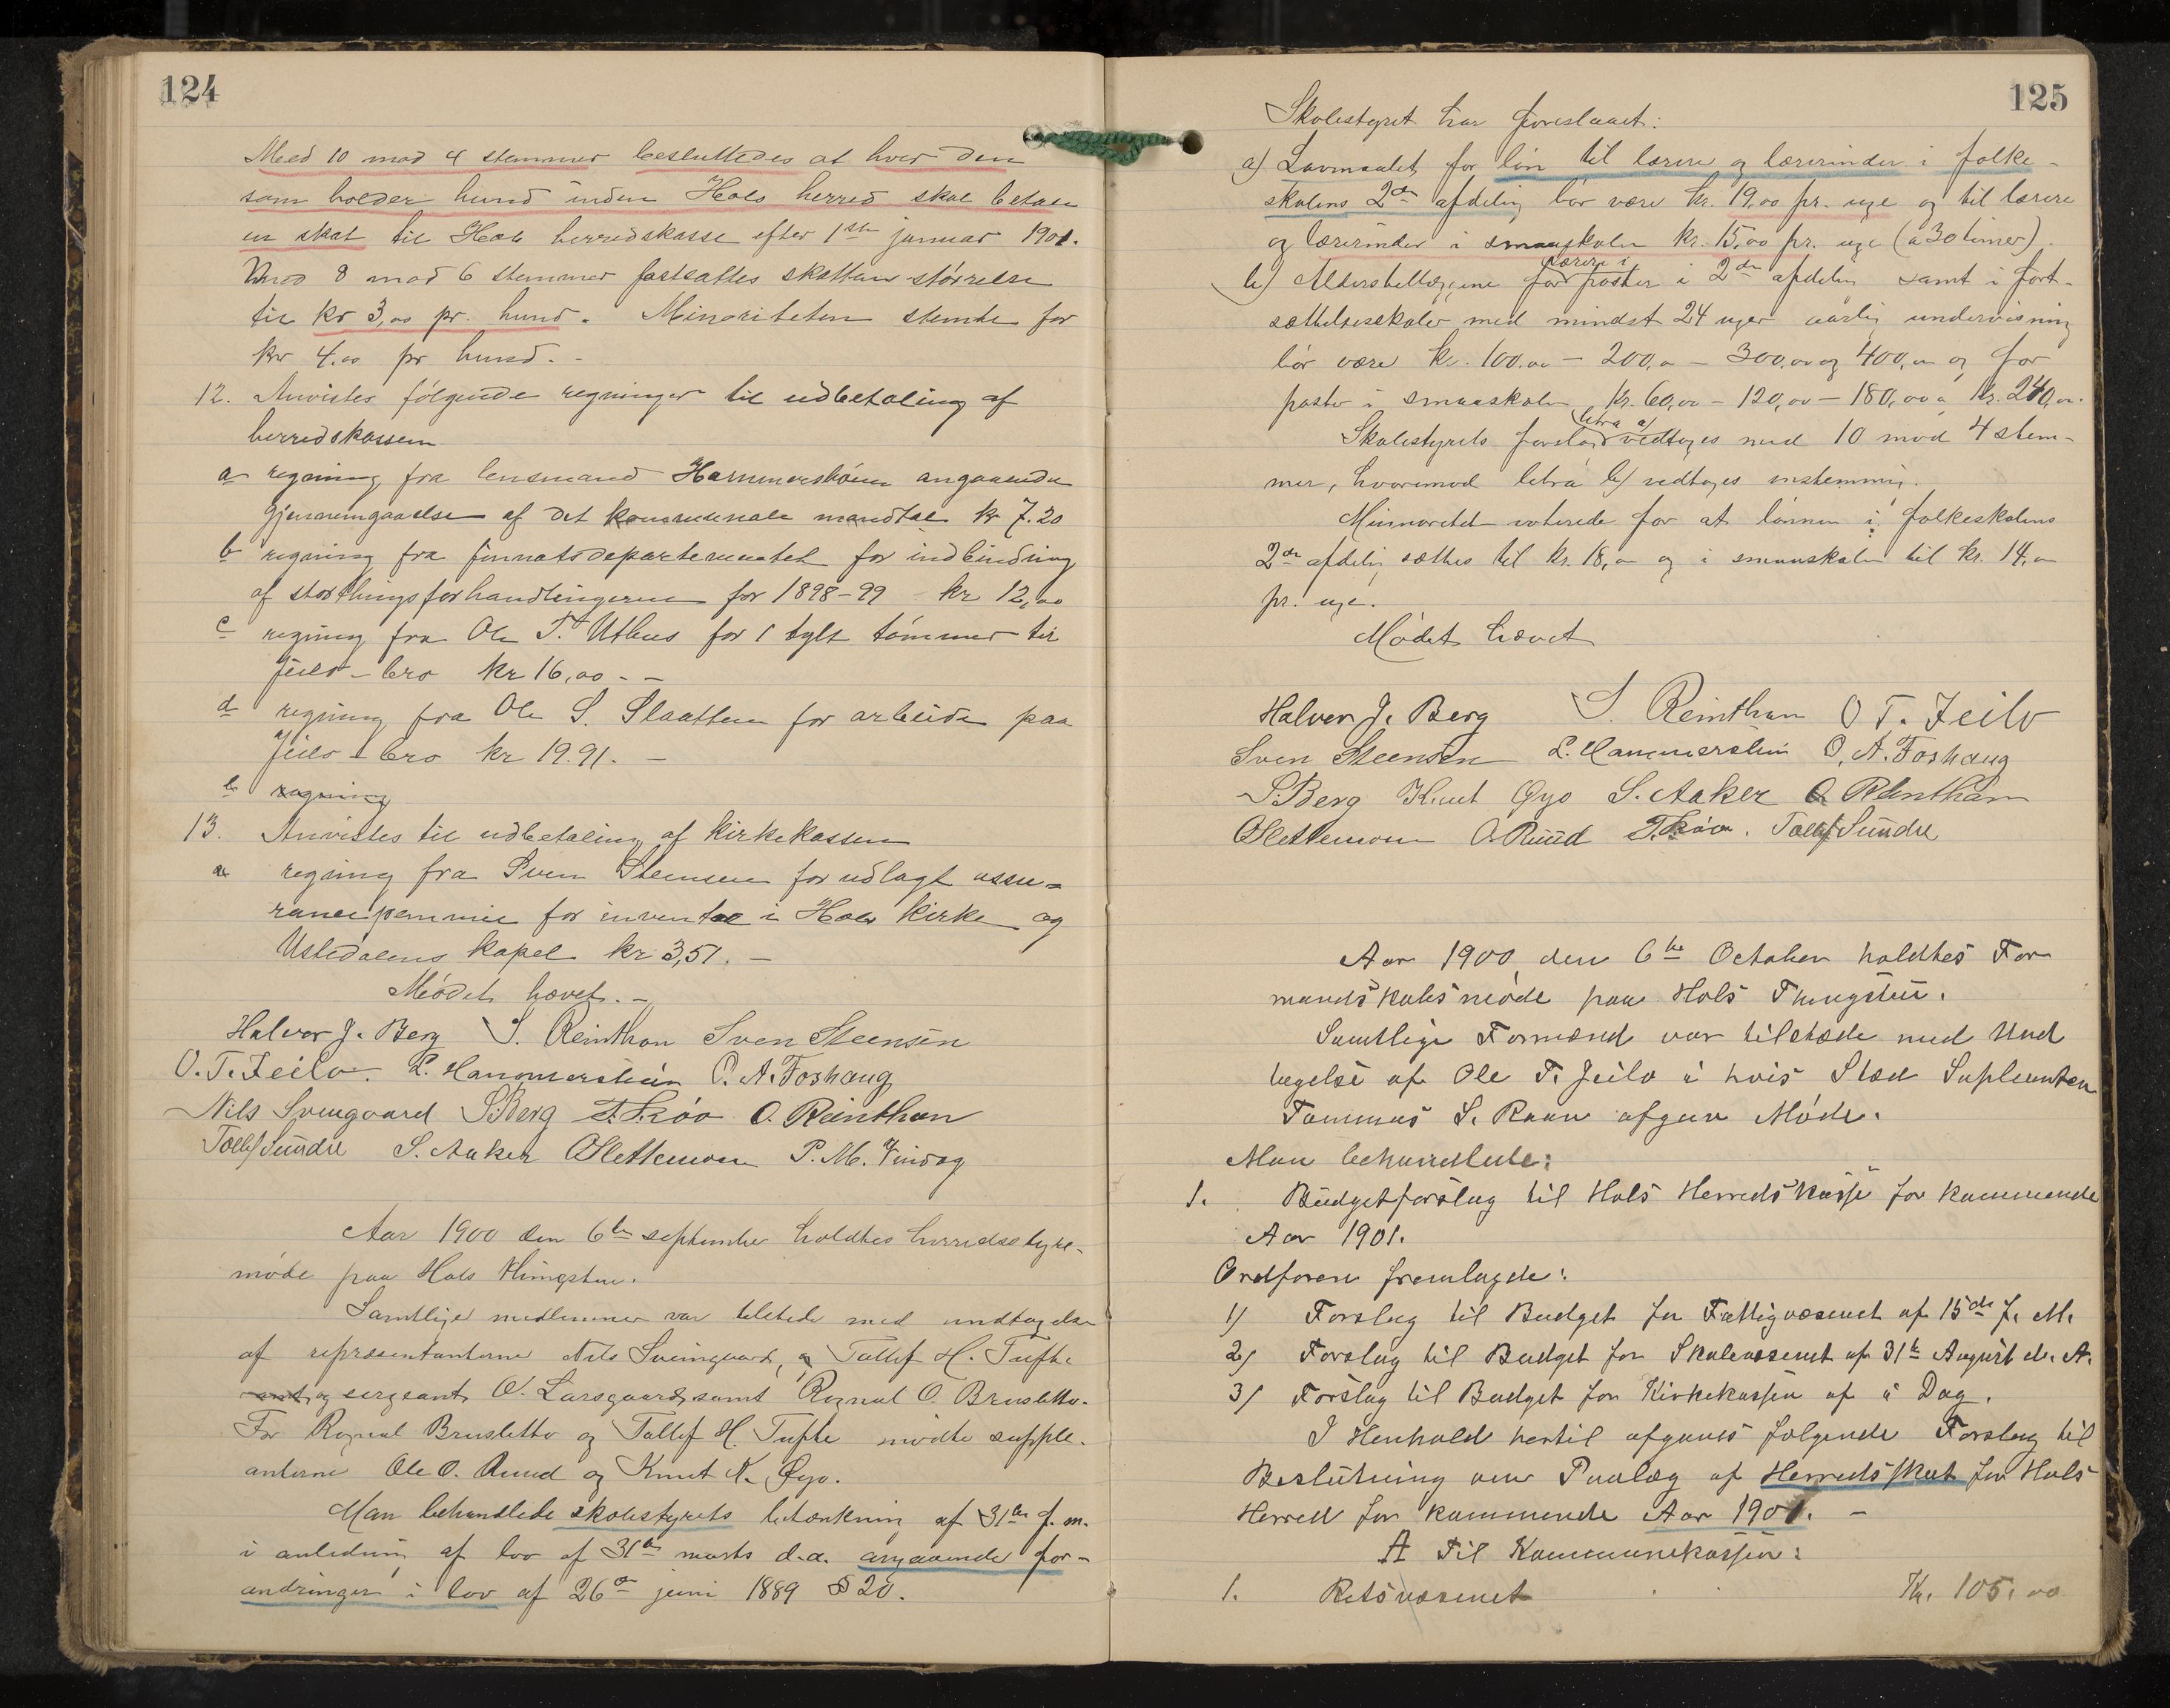 124
Med 10 mod 4 stemmer besluttedes at hver den
som holder hund inden Hols herred skal betale
en skat til Hols herredskasse efter 1ste januar 1901.
Med 8 mod 6 stemmer fastsattes skattens størrelse
til kr 3,00 pr. hund. Minoriteten stemte for
kr 4.00 pr hund. -
12. Anvistes følgende regninger til udbetaling af
herredskassen
a regning fra lensmand Hammersbøen angaaende
gjennemgaaelse af det kommunale mandtal kr 7.20
b regning fra finnatsdepartementet for indbinding
af storthingsforhandlingerne for 1898-99 kr 12,00
c regning fra Ole T. Uthus for 1 tylt tømmer til
Jeilo-bro kr 16,00 - -
d regning fra Ole S. Slaatten for arbeide paa
Jeilo-bro kr 19.91. -
e regning
13. Anvistes til udbetaling af kirkekassen
a regning fra Sven Steensen for udlagt assu=
rancepremie for inventar i Hols kirke og
Ustedalens kapel kr 3,51. -
Mødet hævet. -
Halvor J. Berg S. Reinthon Sven Steensen
O. T. Jeilo. L. Hammersbøen O. A. Foshaug
Nils Sveingaard S. Berg T. Skøo O. Reinthon
Tollef Sundre S. Aaker O Slettemoen P. M.
Aar 1900 den 6te september holdtes herredsstyre-
møde paa Hols thingstue.
Samtlige medlemmer var tilstede med undtagelse
af repræsentanterne Nils Sveingaard, og Tollef H. Tufte
og sergeant O. Larsgaard, samt Rognal O. Brusletto.
For Rognal Brusletto og Tollef H. Tufte mødte supple-
anterne Ole O. Ruud og Knut K. Øyo.
Man behandlede skolestyrets betænkning af 31te f. m.
i anledning af lov af 31te marts d.a. angaaende for-
andringer i lov af 26de juni 1889 § 20.
125
Skolestyret har foreslaaet:
a) Lavmaalet for løn til lærere og lærerinder i folke-
skolens 2den afdeling bør være kr. 19,00 pr. uge og til lærere
og lærerinder i smaaskolen kr. 15,00 pr. uge (a 30 timer).
b) Alderstillæggene for lærere i poster i 2den afdeling samt i fort-
sættelsesskoler med mindst 24 uger aarlig undervisning
bør være kr. 100.00 - 200,00 - 300,00 og 400,00 og for
poster i smaaskolen kr. 60,00 - 120,00 - 180,00 a kr. 240,00.
Skolestyrets forslag litra a) vedtoges med 10 mod 4 stem-
mer, hvorimod litra b) vedtoges enstemmig.
Minnoritet voterede for at lønnen i folkeskolens
2den afdeling sættes til kr. 18,00 og i smaaskolen til kr. 14,00
pr. uge.
Mødet hævet
Halvor J. Berg S. Reinthon O T. Jeilo
Sven Steensen L. Hammersbøen O. A. Foshaug
S. Berg Knut Øyo S. Aaker O Reinthon
O Slettemoen O. Ruud T. Skøo. Tollef Sundre
Aar 1900 den 6te October holdtes For
mandskabsmøde paa Hols Thingstue.
Samtlige Formænd var tilstæde med Und
tagelse af Ole T. Jeilo i hvis Stæd Supleanten
Tommas S. Raaen afgav Møde.
Man behandlede:
1. Budgetforslag til Hols Herredskasse for kommende
Aar 1901.
Ordføren fremlagde:
1) Forslag til Budget for Fattigvæsenet af 15de f. M.
2) Forslag til Budget for Skolevæsenet af 31te August d. A.
3) Forslag til Budget for Kirkekassen af i Dag.
I Henhold hertil afgaves følgende Forslag til
Beslutning om Paalæg af Herredsskat for Hols
Herred for kommende Aar 1901. -
A Til Kommunekassen:
1. Retsvæsenet Kr. 105.00